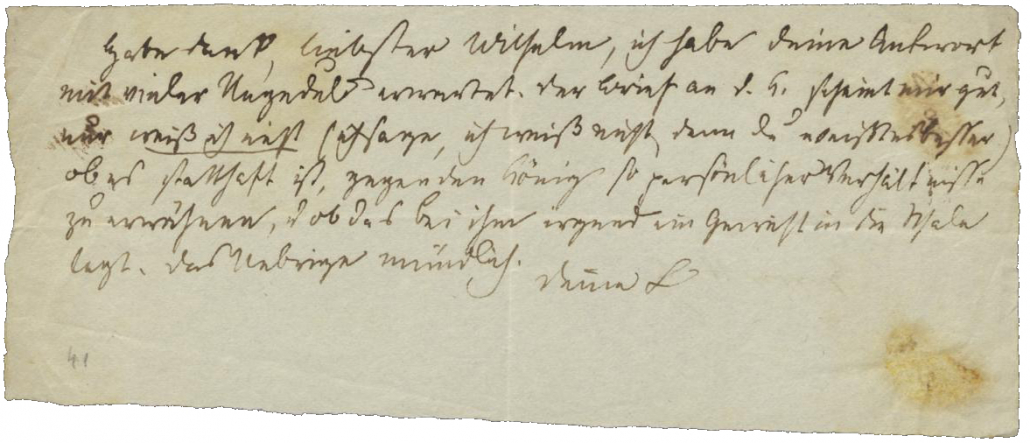 Habe Dank, liebster Wilhelm, ich habe deine Antwort
mit vieler Ungeduld erwartet. Der Brief an d. K. scheint mir gut,
nur weiß ich nicht (ich sage, ich weiß nicht, denn du weißt es besser)
ob es statthaft ist, gegen den König so persönlicher Verhältnisse
zu erwähnen, u ob das bei ihm irgend ein Gewicht in die Schale
legt. Das Uebrige mündlich.
Deine L
41